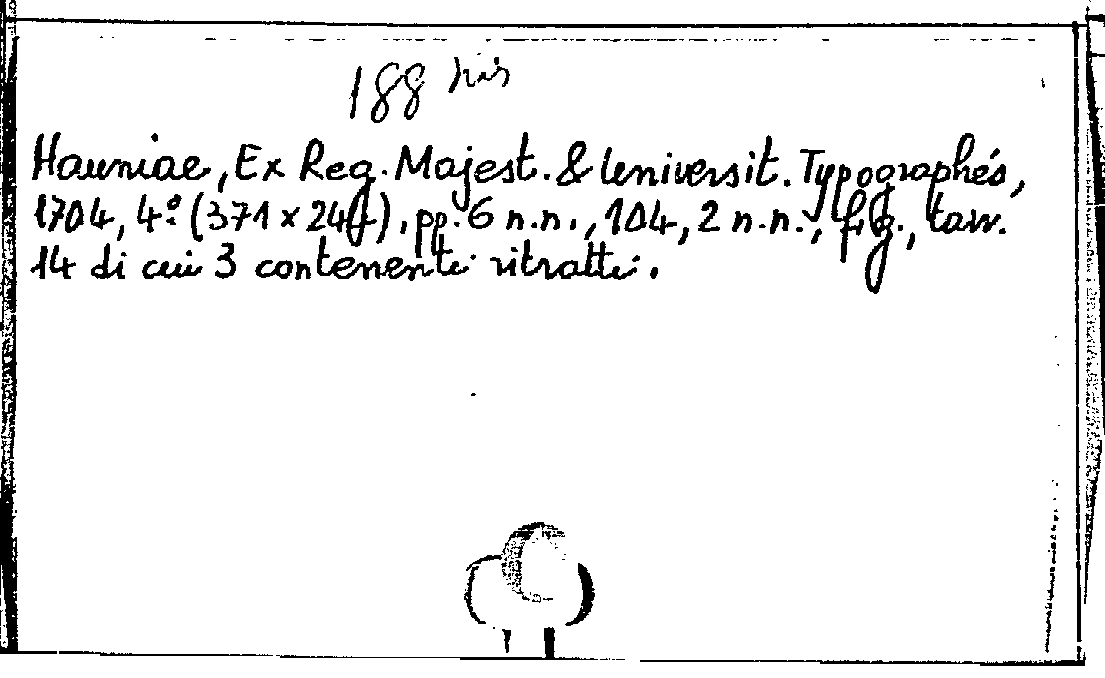 188 bis
Hauniae, Ex Reg. Majest. & Universit. Typographéo,
1704, 4º (371 x 244), pp. 6 n.n., 104, 2 n.n., fig., tavv.
14 di cui 3 contenenti ritratti.